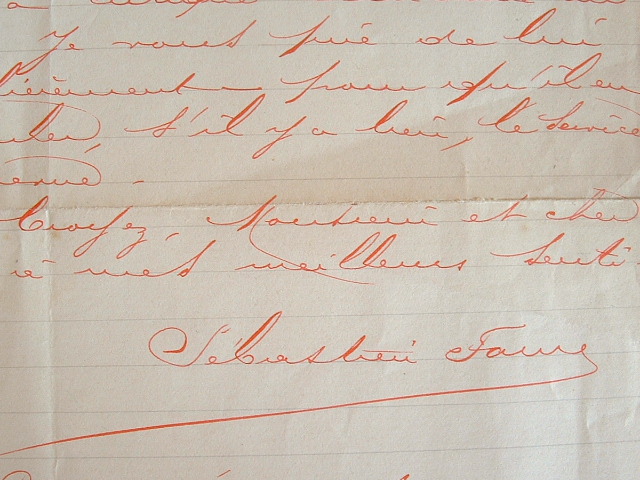 Je vous prie de lui
pour qu'il en
s'il y a lieu, le service
Croyez, Monsieur et cher
à mes meilleurs senti-
Sébastien Faure